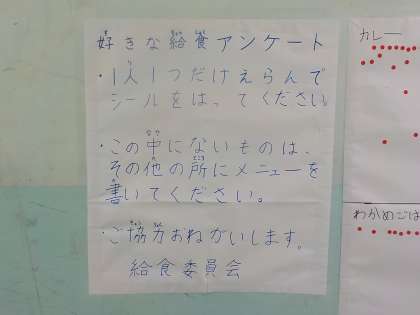 好きな給食アンケート
・1人1つだけえらんで
シールをはってください
・この中にないものは、
その他の所にメニューを
書いてください。
・ご協力おねがいします。
給食委員会
カレー
わかめごは